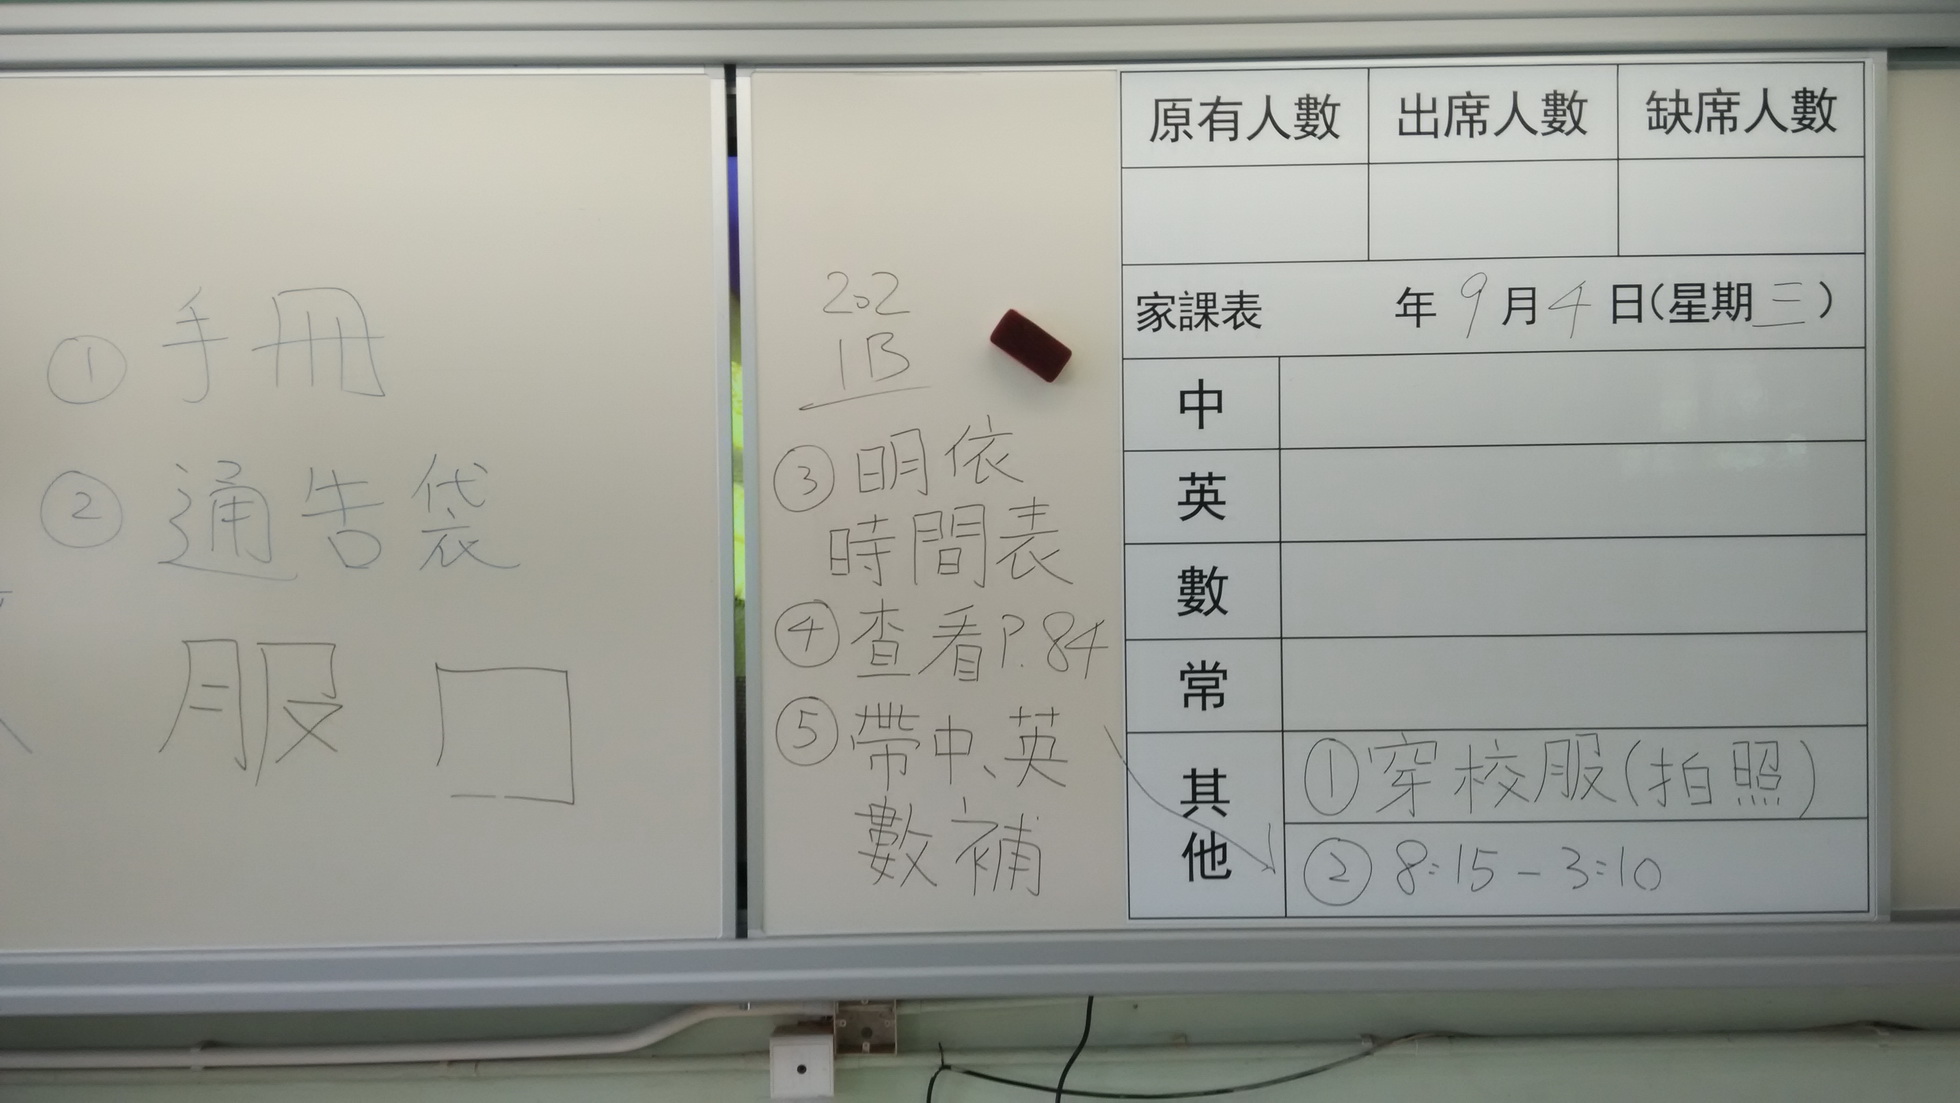 ① 手冊
② 通告袋
服
202
1B
③ 明依
時間表
④ 查看P.84
⑤ 帶中、英
數補
原有人數 出席人數 缺席人數
家課表 年9月4日(星期三)
中
英
數
常
其他
① 穿校服(拍照)
② 8:15-3:10